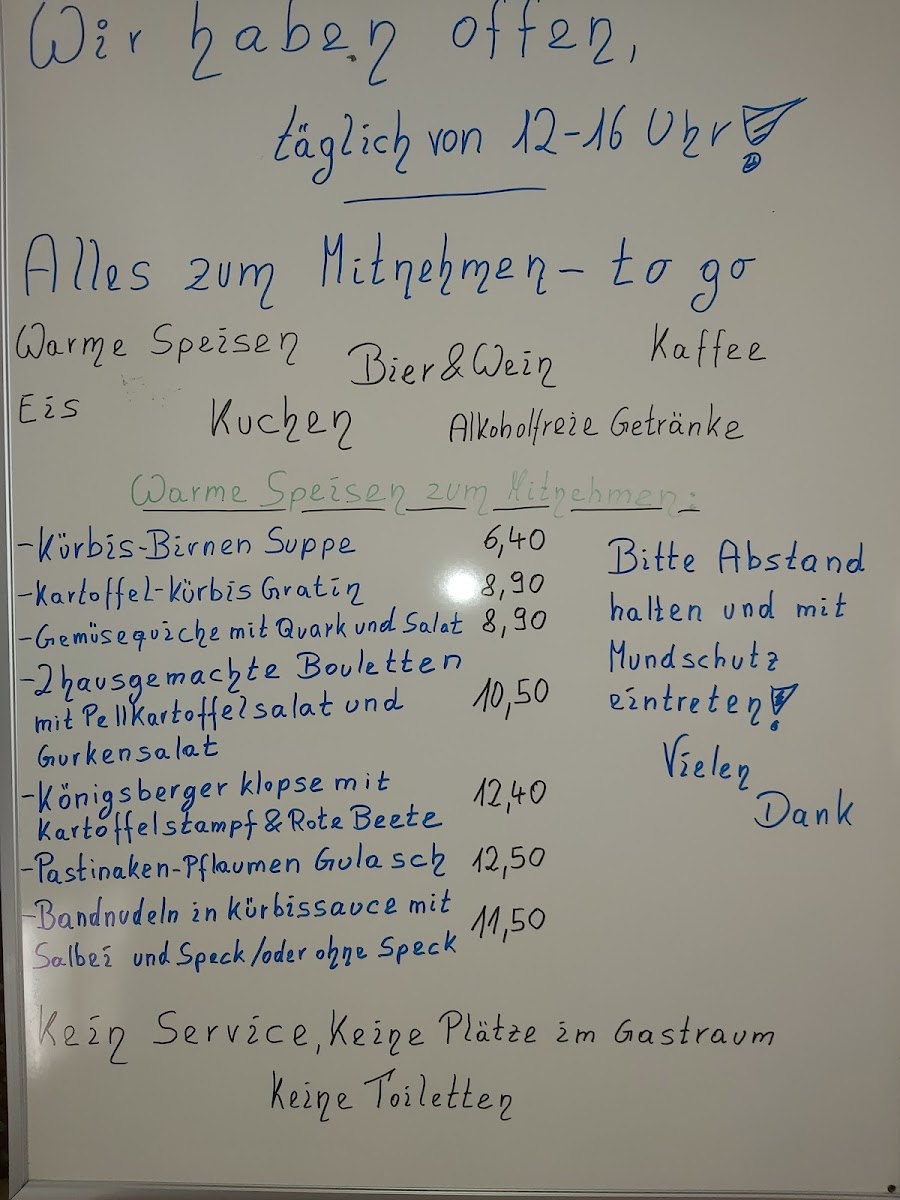 Wir haben offen,
täglich von 12-16 Uhr!
Alles zum Mitnehmen - to go
Warme Speisen Bier & Wein Kaffee
Eis Kuchen Alkoholfreie Getränke
Warme Speisen zum Mitnehmen:
- Kürbis-Birnen Suppe 6,40
- Kartoffel-Kürbis Gratin 8,90
- Gemüsequiche mit Quark und Salat 8,90
- 2 hausgemachte Bouletten
mit Pellkartoffelsalat und 10,50
Gurkensalat
- Königsberger klopse mit 12,40
Kartoffelstampf & Rote Beete
- Pastinaken-Pflaumen Gulasch 12,50
- Bandnudeln in Kürbissauce mit 11,50
Salbei und Speck /oder ohne Speck
Bitte Abstand
halten und mit
Mundschutz
eintreten!
Vielen
Dank
Kein Service, Keine Plätze im Gastraum
Keine Toiletten